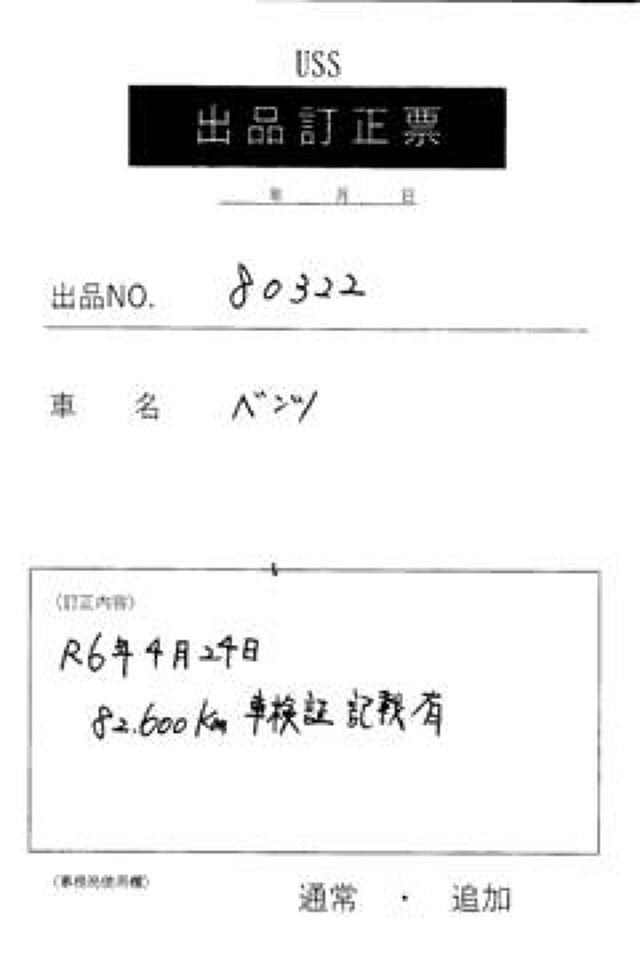 USS
出品訂正票
年 月 日
出品NO. 80322
車 名 ベンツ
(訂正内容)
R6年4月24日
82.600Km 車検証 記載有
(事務局使用欄)
通常 ・ 追加